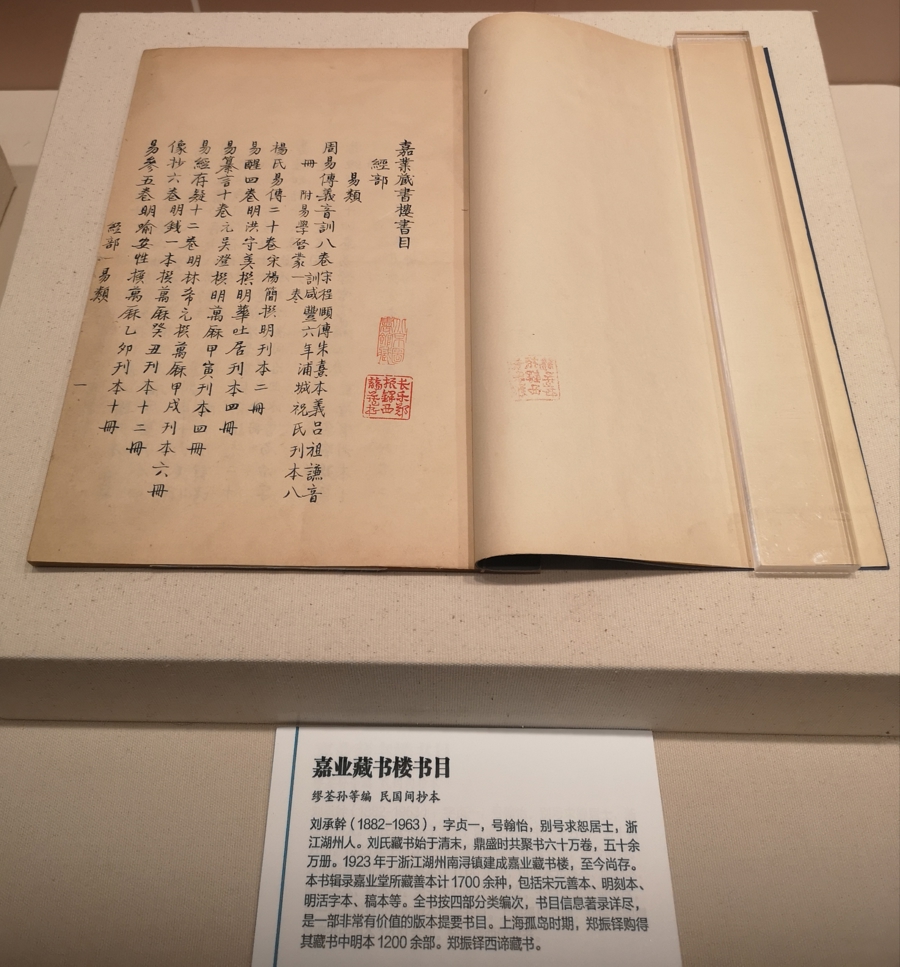 嘉業藏書樓書目
經部
易類
周易傳義音訓八卷宋程頤傳朱熹本義呂祖謙音
訓咸豐六年浦城祝氏刊本八
冊 附易學啓蒙一卷
楊氏易傳二十卷宋楊簡撰明刊本二冊
易醒四卷明洪守美撰明華吐居刊本四冊
易纂言十卷元吳澄撰明萬厤甲寅刊本四冊
易經存疑十二卷明林希元撰萬厤甲戌刊本六冊
像抄六卷明錢一本撰萬厤癸丑刊本十二冊
易參五卷明喻安性撰萬厤乙卯刊本十冊
經部 易類
一
长乐郑
振铎西
谛藏书
嘉业藏书楼书目
缪荃孙等编 民国间抄本
刘承幹（1882-1963），字贞一，号翰怡，别号求恕居士，浙
江湖州人。刘氏藏书始于清末，鼎盛时共聚书六十万卷，五十余
万册。1923年于浙江湖州南浔镇建成嘉业藏书楼，至今尚存。
本书辑录嘉业堂所藏善本计1700余种，包括宋元善本、明刻本、
明活字本、稿本等。全书按四部分类编次，书目信息著录详尽，
是一部非常有价值的版本提要书目。上海孤岛时期，郑振铎购得
其藏书中明本1200余部。郑振铎西谛藏书。